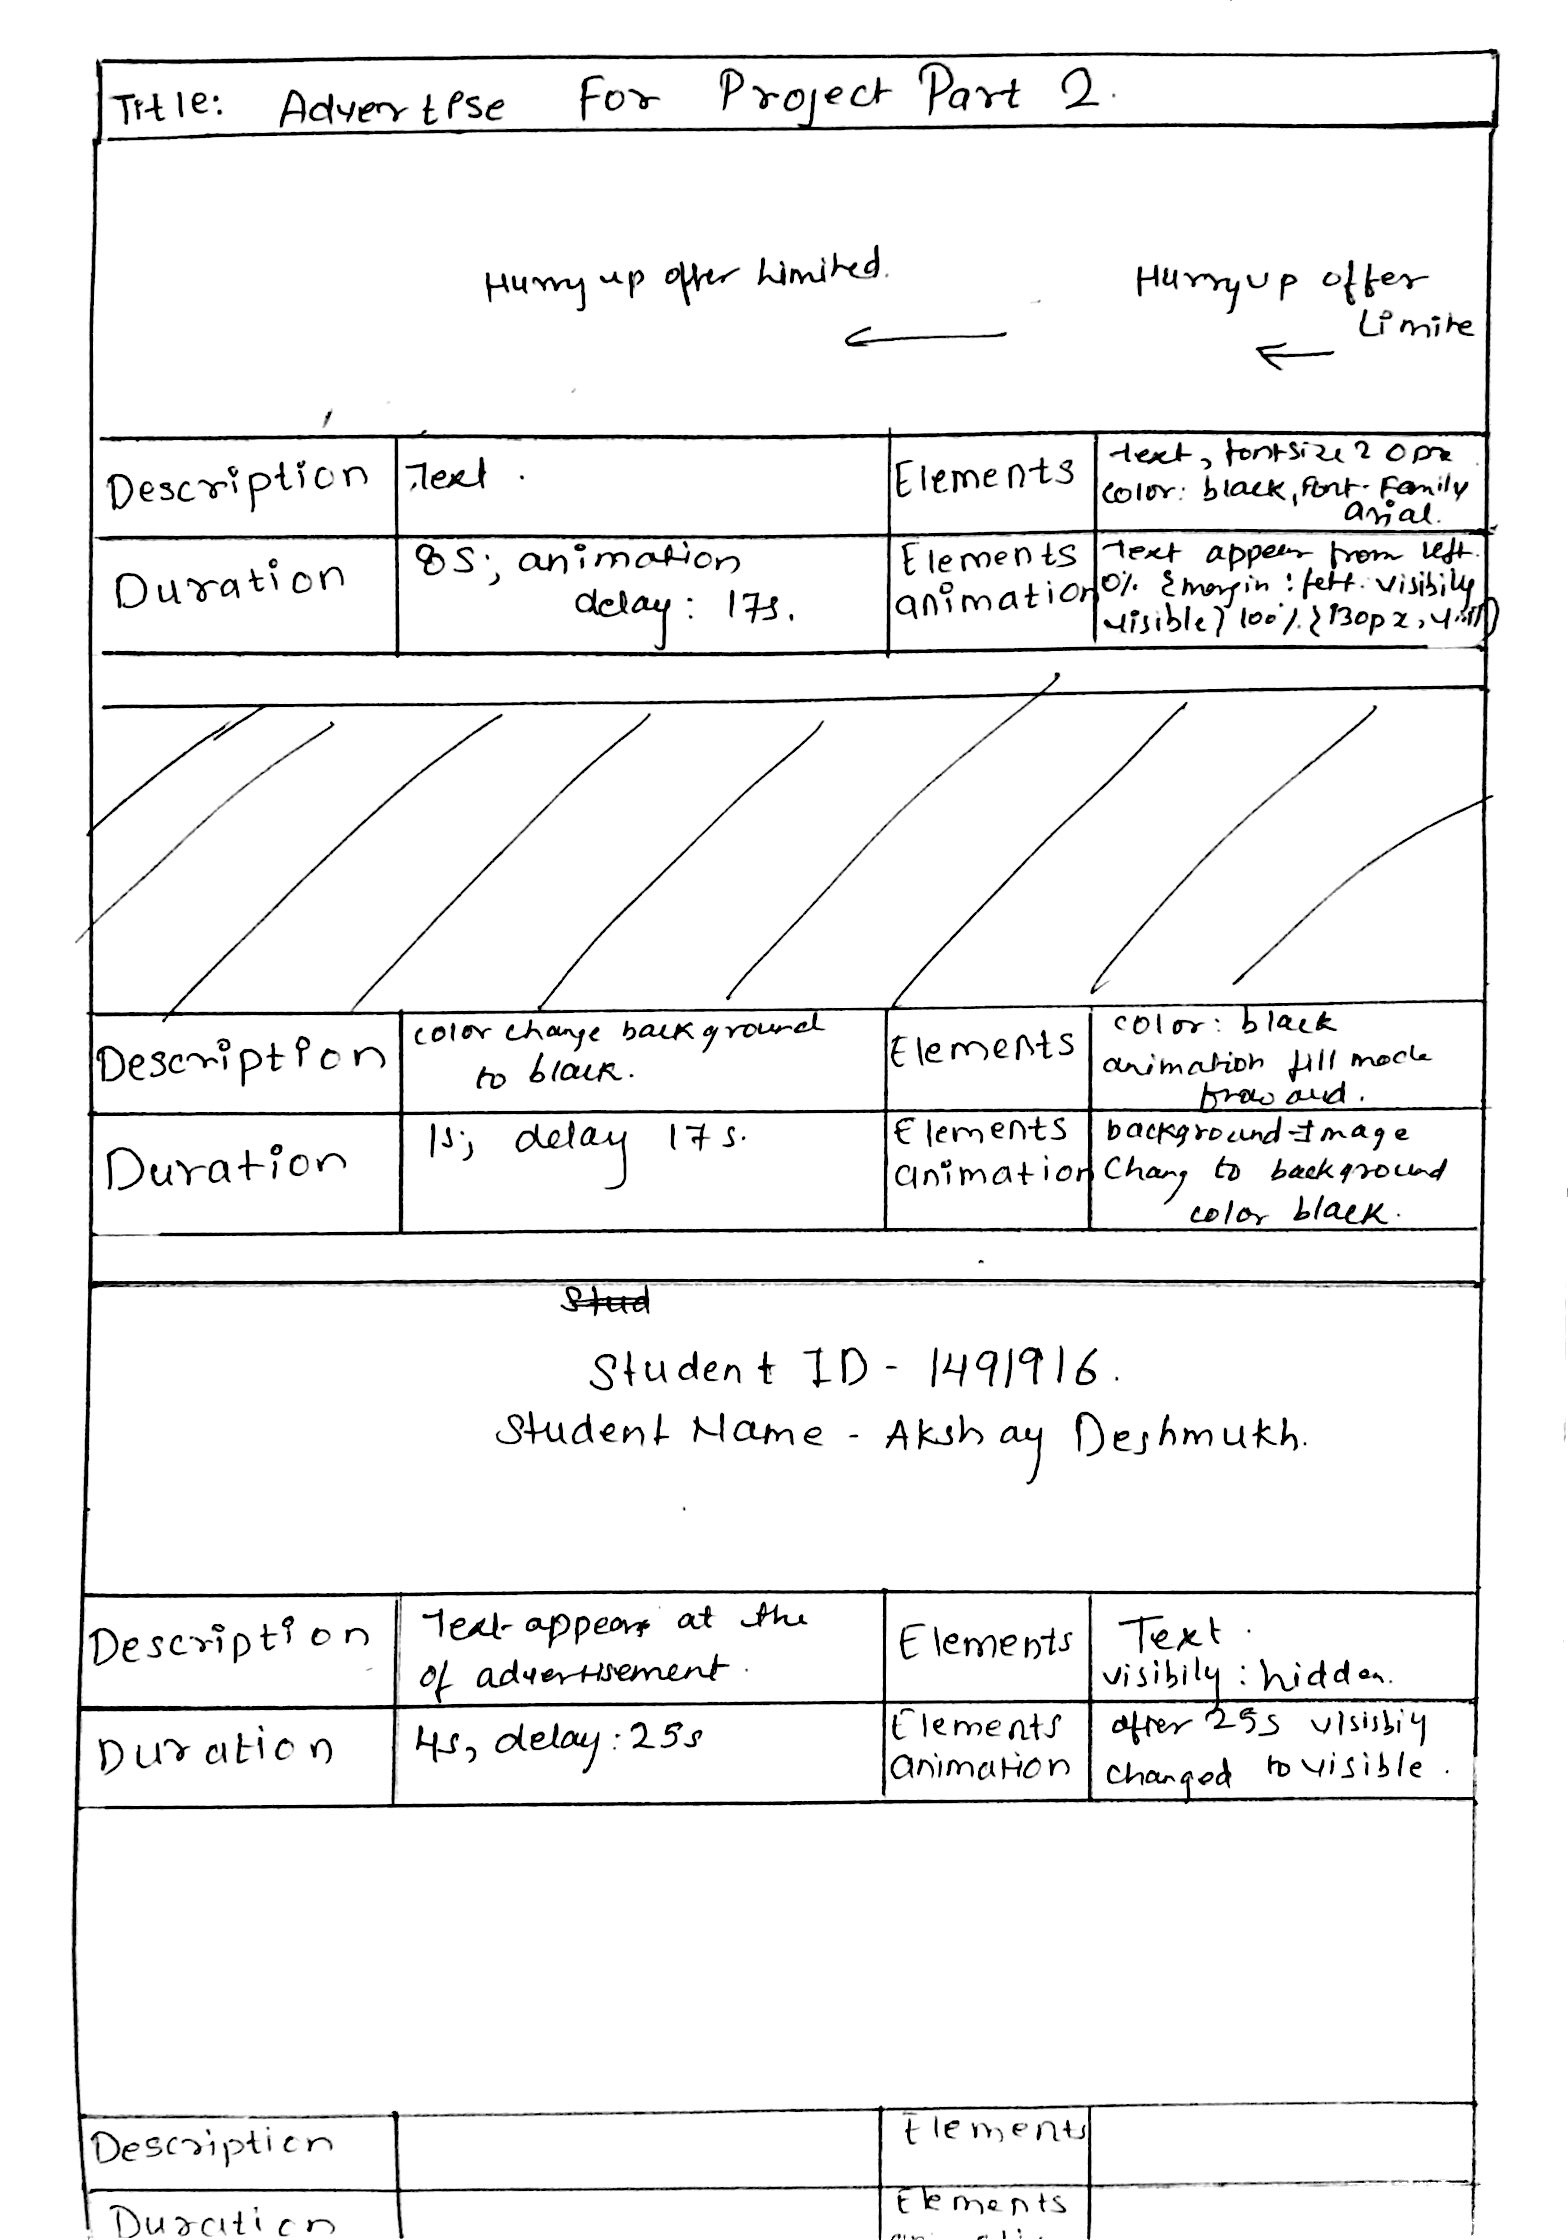 Title: Advertise For Project Part 2.
Hurry up offer Limited.
Hurry up offer
Limite
Description
Text.
Elements
text, fontsize 20px
color: black, font-Family
arial.
Duration
8s; animation
delay: 17s.
Elements
animation
Text appear from left.
0% {margin: left. visibily
visible} 100% {130px,
Description
color change background
to black.
Elements
color: black
animation fill mode
Duration
1s; delay 17s.
Elements
animation
background-Image
Chang to background
color black.
Stud
Student ID - 1491916.
Student Name - Akshay Deshmukh.
Description
Text appears at the
of advertisement.
Elements
Text.
visibily: hidden.
Duration
4s, delay: 25s
Elements
animation
after 25s visisbiy
changed to visible.
Description
Elements
Duration
Elements